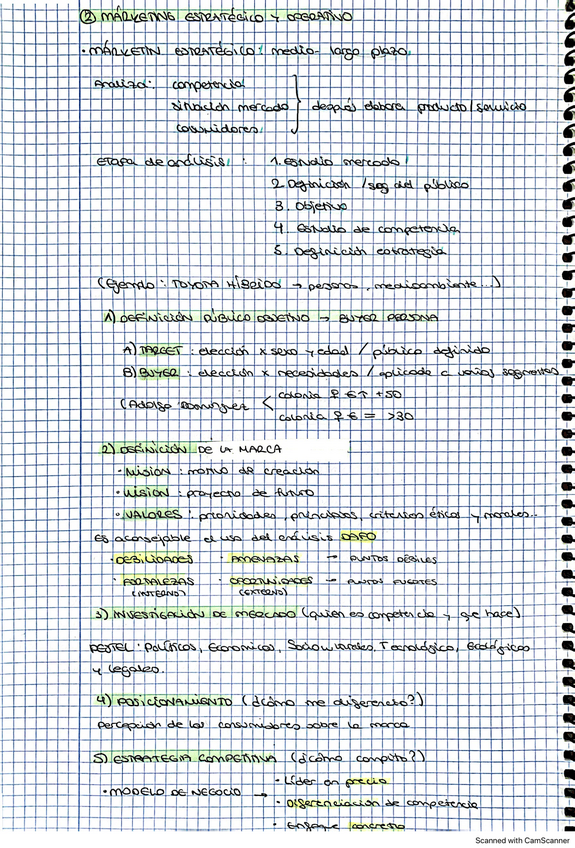 ② MÁRKETING ESTRATÉGICO Y OPERATIVO
· MÁRKETIN ESTRATÉGICO: medio - largo plazo.
Analiza: competencia
situación mercado } después elabora producto/servicio
consumidores
ETAPA de análisis: 1. estudio mercado
2. Definición / seg del público
3. Objetivo
4. Estudio de competencia
5. Definición estrategia
(Ejemplo: TOYOTA HÍBRIDO → personas, medioambiente...)
1) DEFINICIÓN PÚBLICO OBJETIVO → BUYER PERSONA
A) TARGET: elección x sexo y edad / público definido
B) BUYER: elección x necesidades / aplicado a varios segmentos
(Adolfo Domínguez < colonia ♀ €↑ +50
colonia ♀ € = >30
2) DEFINICIÓN DE LA MARCA
· MISIÓN: motivo de creación
· VISIÓN: proyecto de futuro
· VALORES: prioridades, principios, criterios éticos y morales...
Es aconsejable el uso del análisis DAFO
· DEBILIDADES · AMENAZAS → PUNTOS DÉBILES
· FORTALEZAS · OPORTUNIDADES → PUNTOS FUERTES
(INTERNO) (EXTERNO)
3) INVESTIGACIÓN DE MERCADO (quién es competencia y qé hace)
PESTEL: Políticos, Económicos, Socioculturales, Tecnológico, Ecológicos
y legales.
4) POSICIONAMIENTO (¿cómo me diferencio?)
Percepción de los consumidores sobre la marca
5) ESTRATEGIA COMPETITIVA (¿cómo compito?)
· Líder en precio
· MODELO DE NEGOCIO → · Diferenciación de competencia
· Enfoque concreto
Scanned with CamScanner